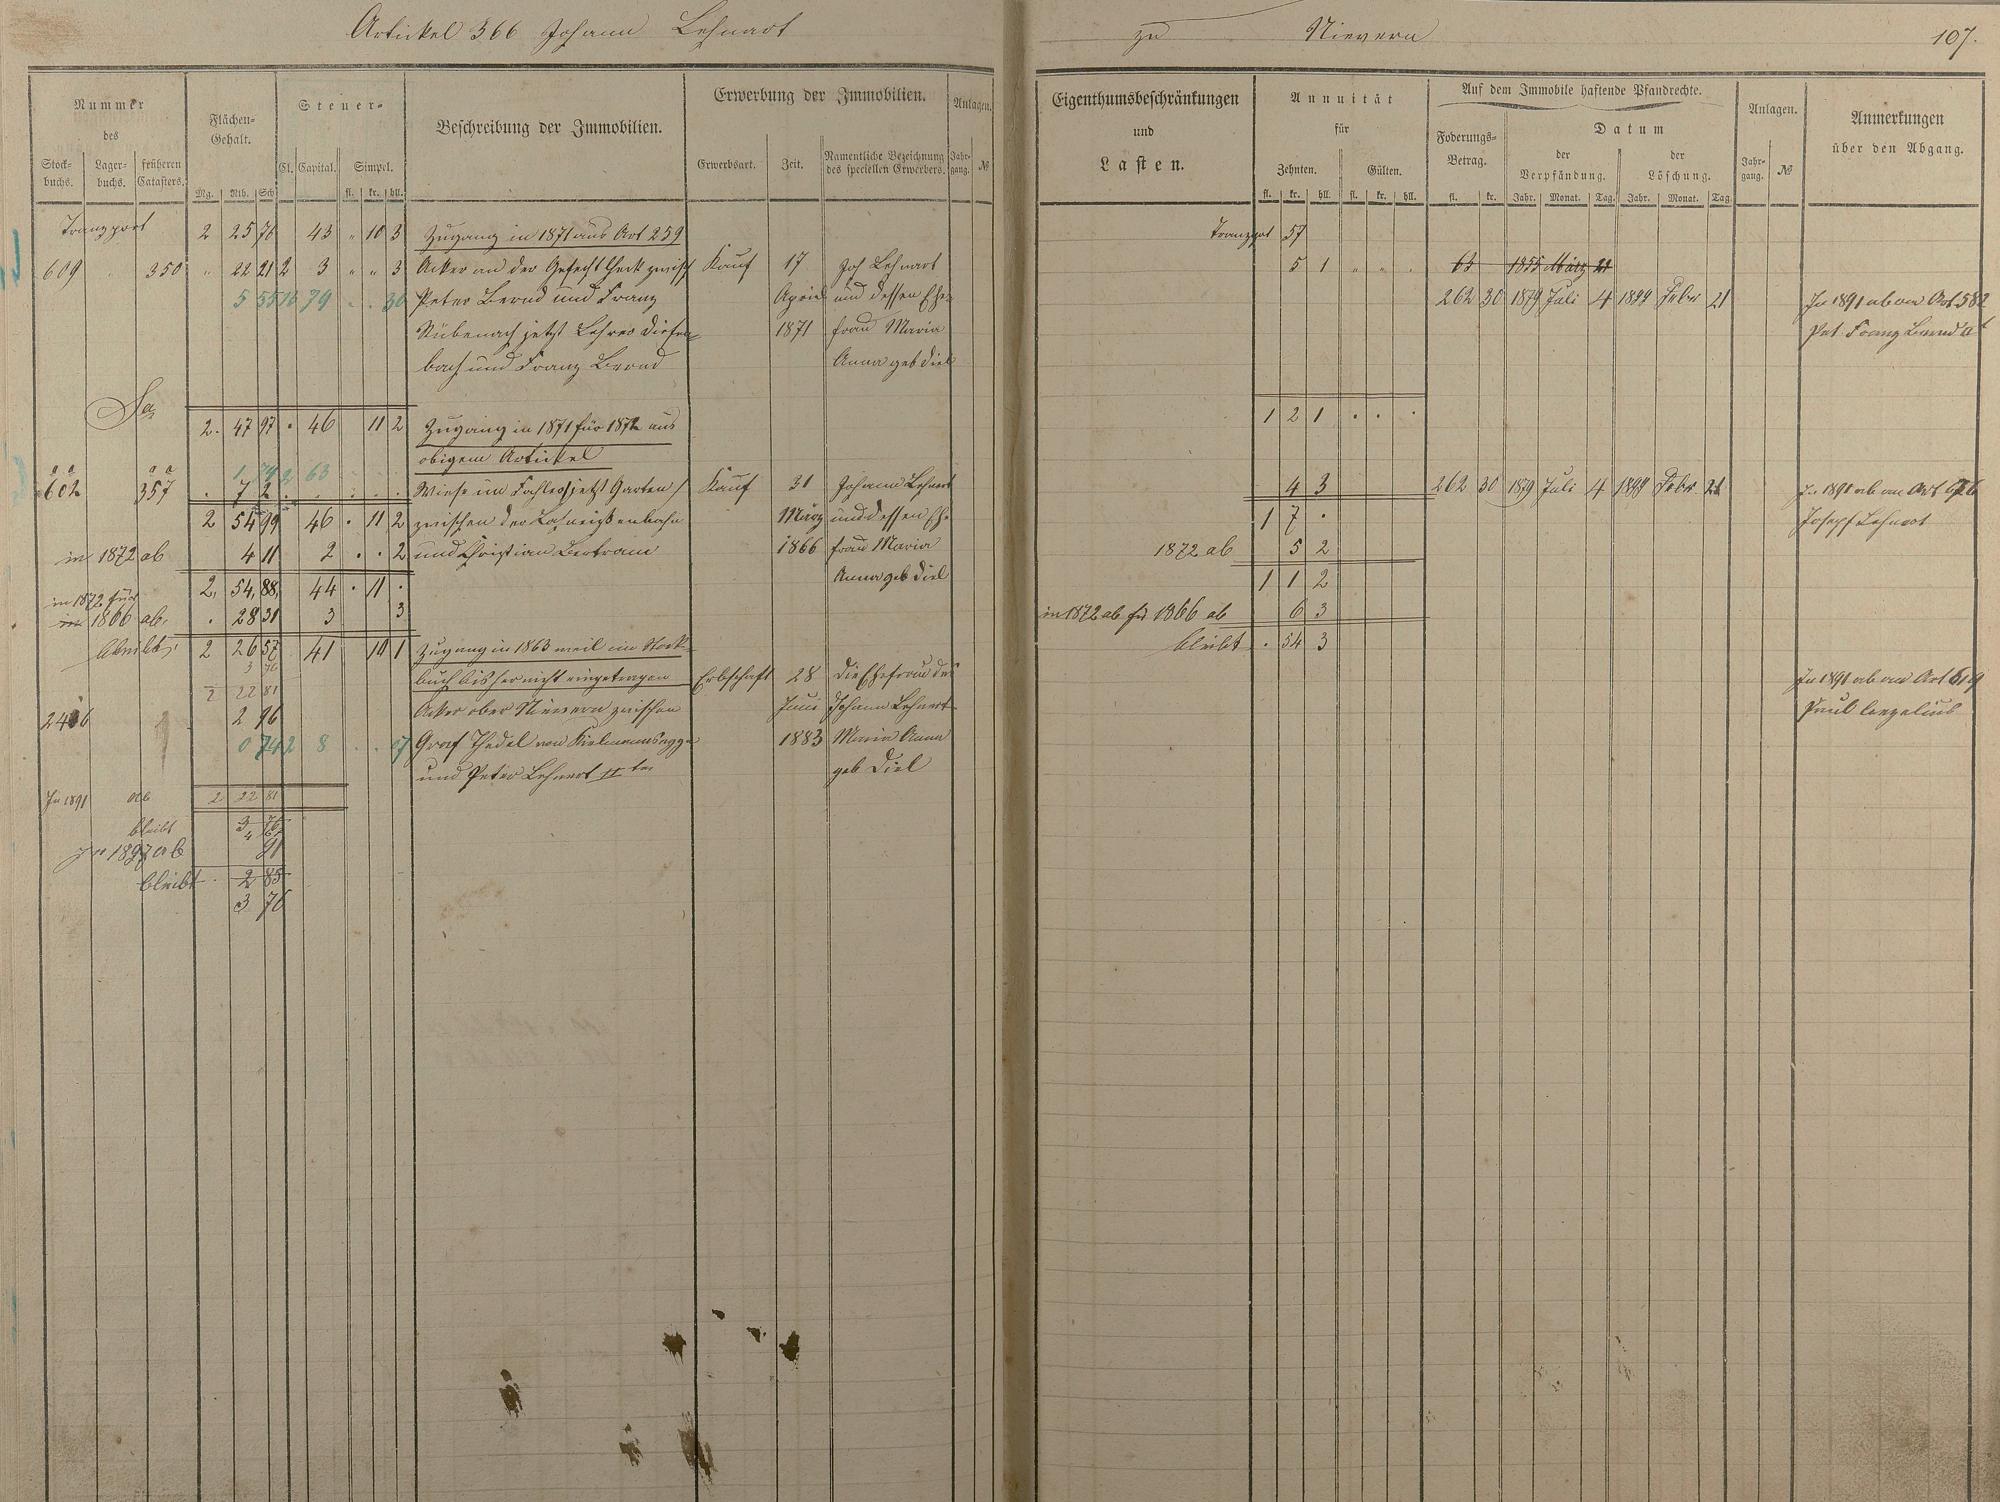 Artickel 366 Johann Lehnert
zu Nievern 107.
Nummer
des
Stock-buchs. Lager-buchs. früheren Catasters.
Flächen-Gehalt.
Mg. Rth. Sch.
Steuer-
Cl. Capital. Simpel.
fl. kr. hll.
Beschreibung der Immobilien.
Erwerbung der Immobilien.
Erwerbsart. Zeit. Namentliche Bezeichnung des speciellen Erwerbers.
Anlagen.
Jahr-gang. №
Eigenthumsbeschränkungen
und
Lasten.
Annuität
für
Zehnten. Gülten.
fl. kr. hll. fl. kr. hll.
Auf dem Immobile haftende Pfandrechte.
Foderungs-Betrag.
fl. kr.
Datum
der Verpfändung. der Löschung.
Jahr. Monat. Tag. Jahr. Monat. Tag.
Anlagen.
Jahr-gang. №
Anmerkungen
über den Abgang.
Transport 2 25 76 43 " 10 3 Zugang in 1871 aus Art 259
609 350 " 22 21 2 3 " " 3 Acker an der Gefecht Heck zwisch Kauf 17 Joh Lehnert
5 55 79 30 Peter Bernd und Franz April und dessen Ehe-
Rübenach jetzt Lehrer Diefen- 1871 frau Maria
bach und Franz Bernd Anna geb Diel
Sa
2. 47 97 . 46 11 2 Zugang in 1871 für 1872 aus
obigem Artickel
1 74 2 63
602 357 . 7 2 Wiese im Fahler jetzt Garten / Kauf 31 Johann Lehnert
2 54 99 46 . 11 2 zwischen der Lahneisenbahn März und dessen Ehe-
in 1872 ab 4 11 2 . . 2 und Christian Bertram 1866 frau Maria
2, 54, 88, 44 . 11 . Anna geb Diel
in 1872 für
in 1866 ab. . 28 31 3 3
bleibt. 2 26 57 41 10 1 Zugang in 1863 weil im Stock-
3 76
buch bisher nicht eingetragen Erbschaft 28 die Ehefrau des
2 22 81
Acker ober Nievern zwischen Juni Johann Lehnert
2406 2 96
0 74 2 8 . . 07 Graf Thedel von Kielmannsegge 1883 Maria Anna
und Peter Lehnert IIter geb Diel
In 1891 ab 2 22 81
bleibt 3 76
In 1897 ab 91
bleibt 2 85
3 76
Transport 57
5 1 " " . 63 1855 März 21
262 30 1879 Juli 4 1899 Febr 21 In 1891 ab an Art 582
Pet. Franz Bernd
1 2 1 . . .
4 3 262 30 1879 Juli 4 1899 Febr 21 In 1891 ab an Art 626
Joseph Lehnert
1 7 .
1872 ab 5 2
1 1 2
in 1872 ab für 1866 ab 6 3
bleibt . 54 3
In 1891 ab an Art 619
Paul